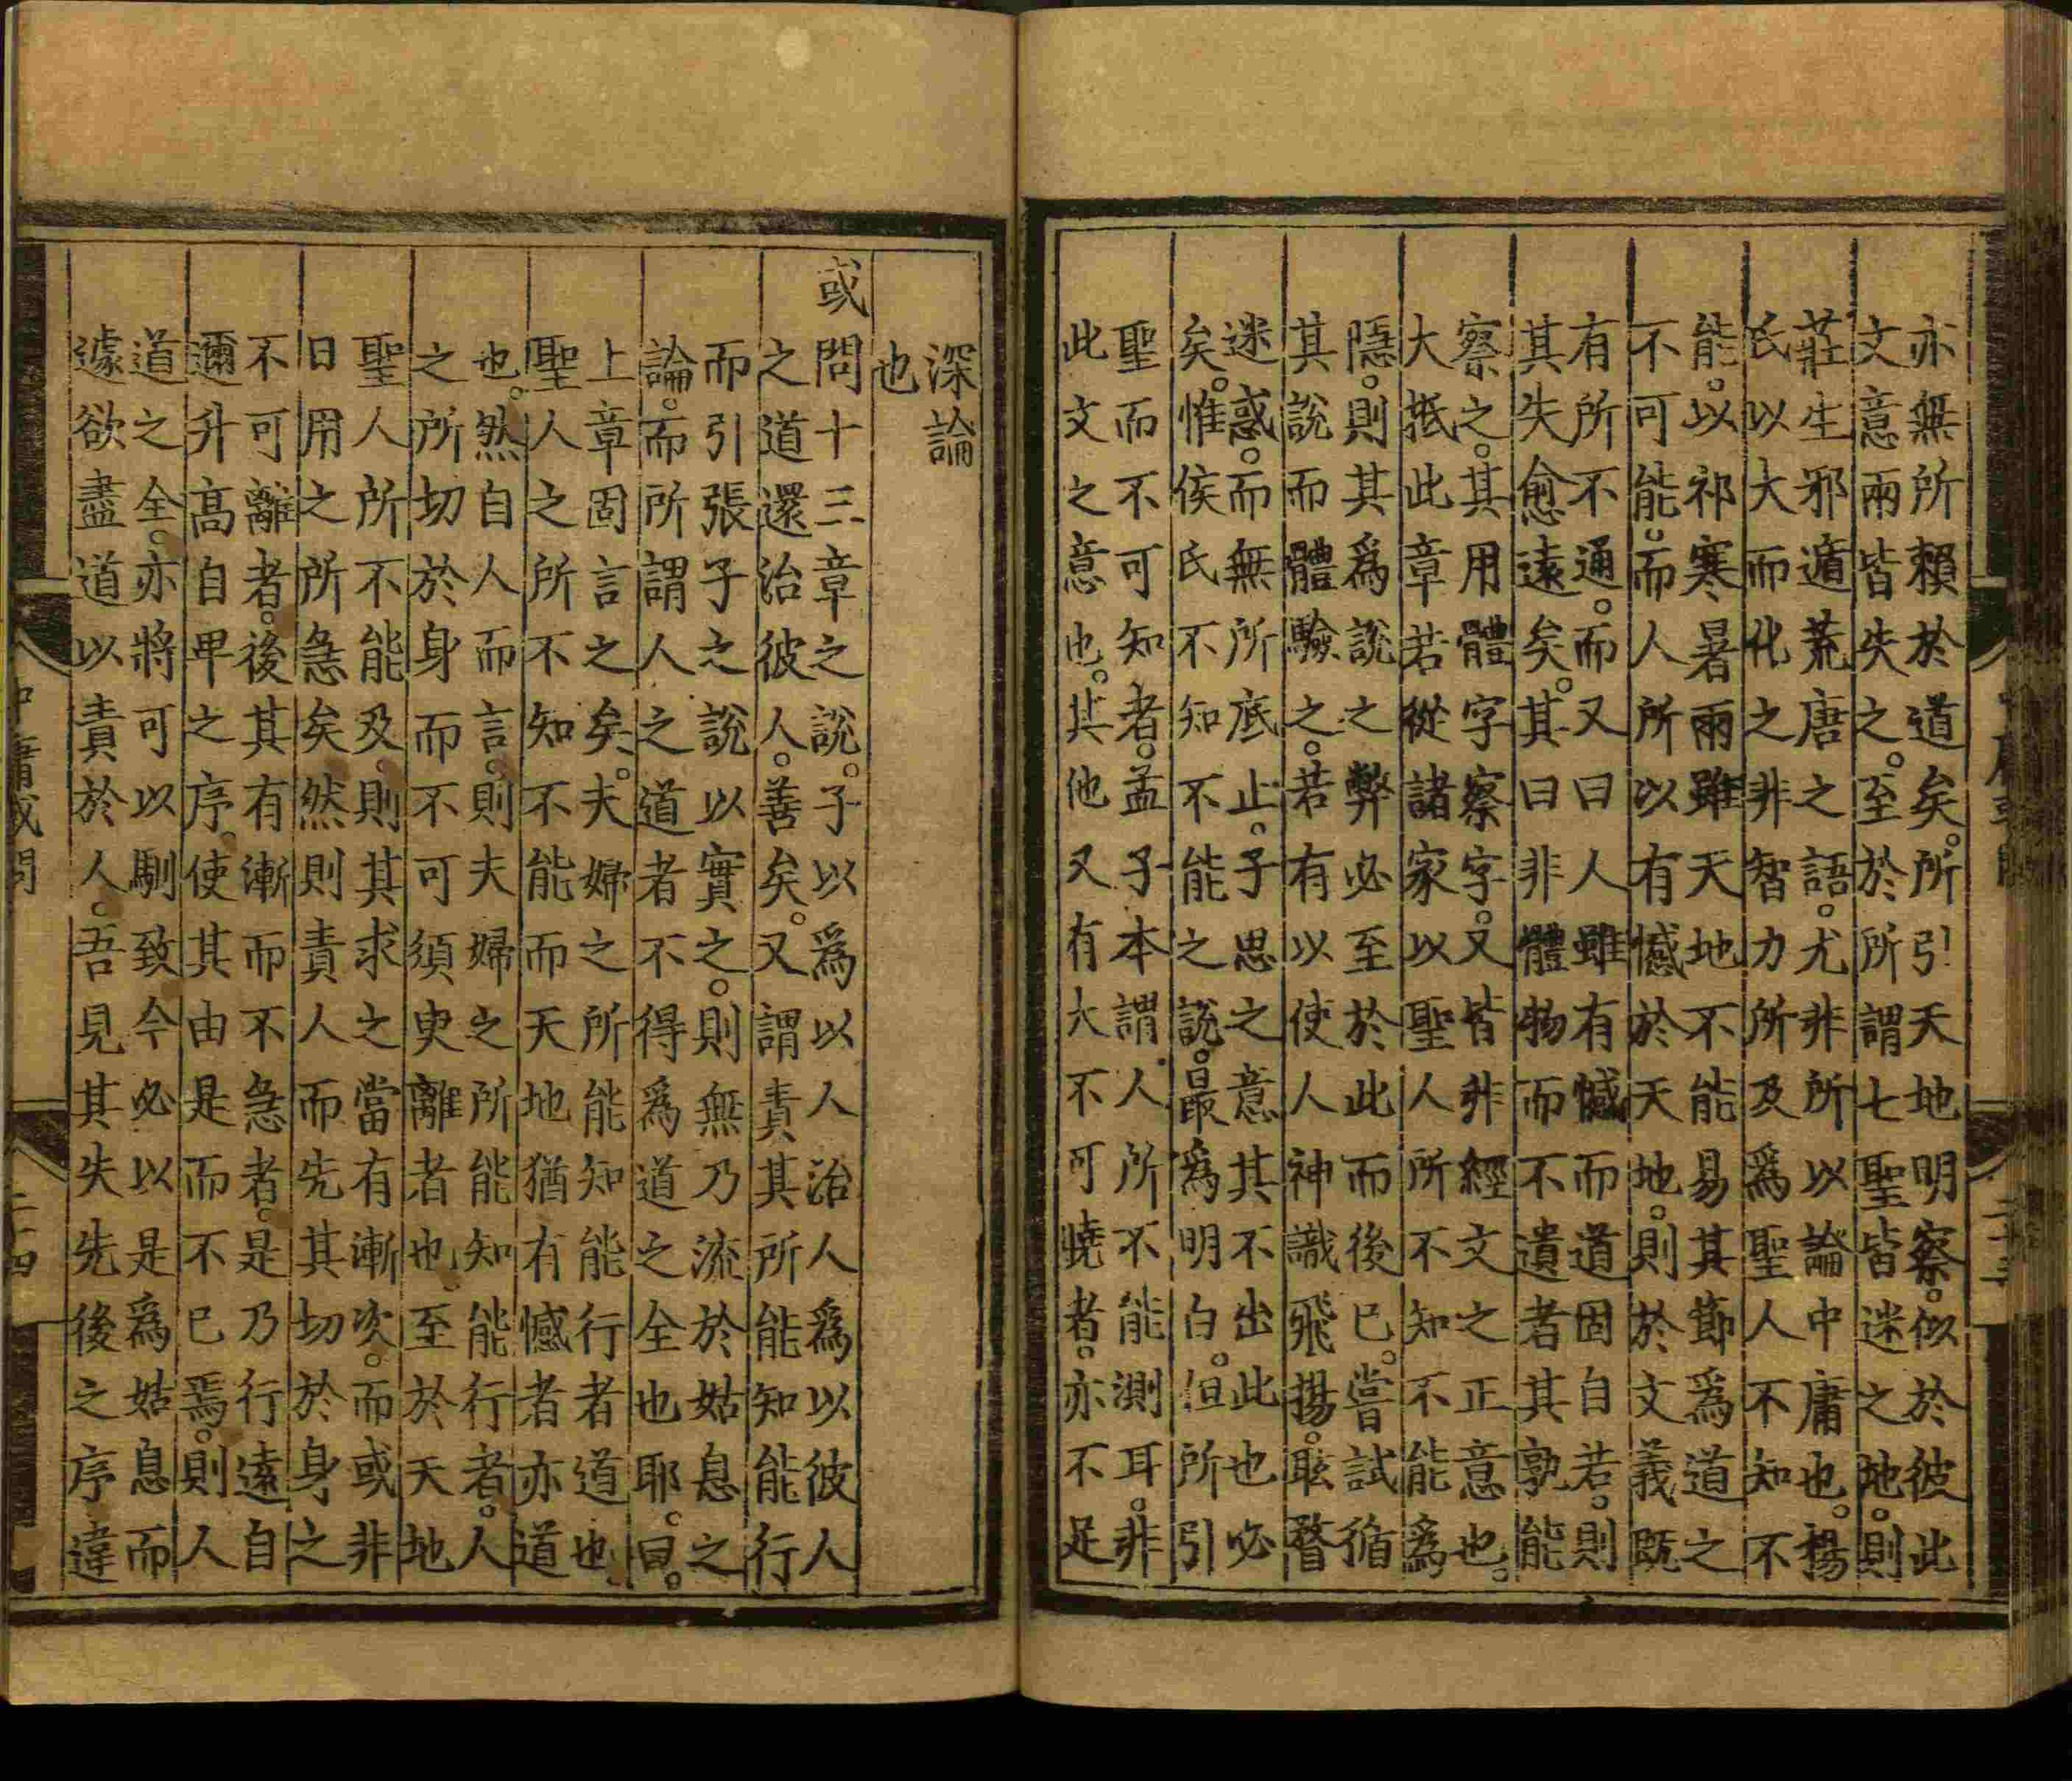 亦無所賴於道矣。所引天地明察。似於彼此
文意兩皆失之。至於所謂七聖皆迷之地。則
莊生邪遁荒唐之語。尤非所以論中庸也。楊
氏以大而化之非智力所及爲聖人不知不
能。以祁寒暑雨雖天地不能易其節爲道之
不可能。而人所以有憾於天地。則於文義既
有所不通。而又曰人雖有憾而道固自若。則
其失愈遠矣。其曰非體物而不遺者其孰能
察之。其用體字察字。又皆非經文之正意也。
大抵此章若從諸家以聖人所不知不能爲
隱。則其爲說之弊必至於此而後已。嘗試循
其說而體驗之。若有以使人神識飛揚。眩瞀
迷惑。而無所底止。子思之意其不出此也必
矣。惟侯氏不知不能之說。最爲明白。但所引
聖而不可知者。孟子本謂人所不能測耳。非
此文之意也。其他又有大不可曉者。亦不足
深論
也
或問十三章之說。子以爲以人治人爲以彼人
之道還治彼人。善矣。又謂責其所能知能行
而引張子之說以實之。則無乃流於姑息之
論。而所謂人之道者不得爲道之全也耶。曰。
上章固言之矣。夫婦之所能知能行者道也
聖人之所不知不能而天地猶有憾者亦道
也。然自人而言。則夫婦之所能知能行者。人
之所切於身而不可須臾離者也。至於天地
聖人所不能及。則其求之當有漸次。而或非
日用之所急矣。然則責人而先其切於身之
不可離者。後其有漸而不急者。是乃行遠自
邇升高自卑之序。使其由是而不已焉。則人
道之全。亦將可以馴致。今必以是爲姑息而
遽欲盡道以責於人。吾見其失先後之序違
中庸或問
二十四